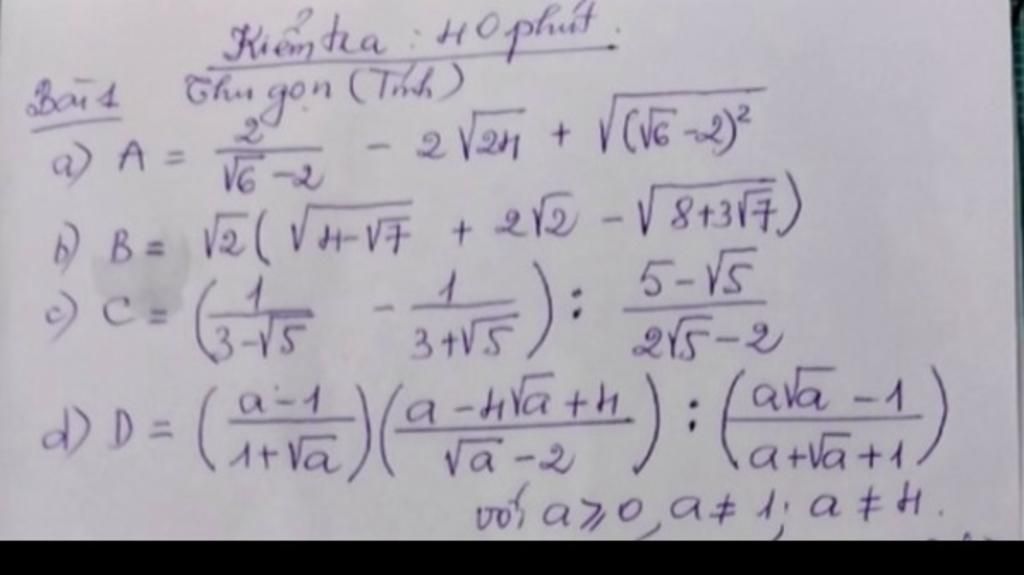 Kiểm tra : 40 phút.
Bài 1 Thu gọn (Tính)
a) A = 2/(√6 - 2) - 2√24 + √((√6 - 2)²)
b) B = √2(√(4-√7) + 2√2 - √(8+3√7))
c) C = (1/(3-√5) - 1/(3+√5)) : (5-√5)/(2√5-2)
d) D = ((a-1)/(1+√a))((a-4√a+4)/(√a-2)) : ((a√a-1)/(a+√a+1))
với a ≥ 0, a ≠ 1; a ≠ 4.